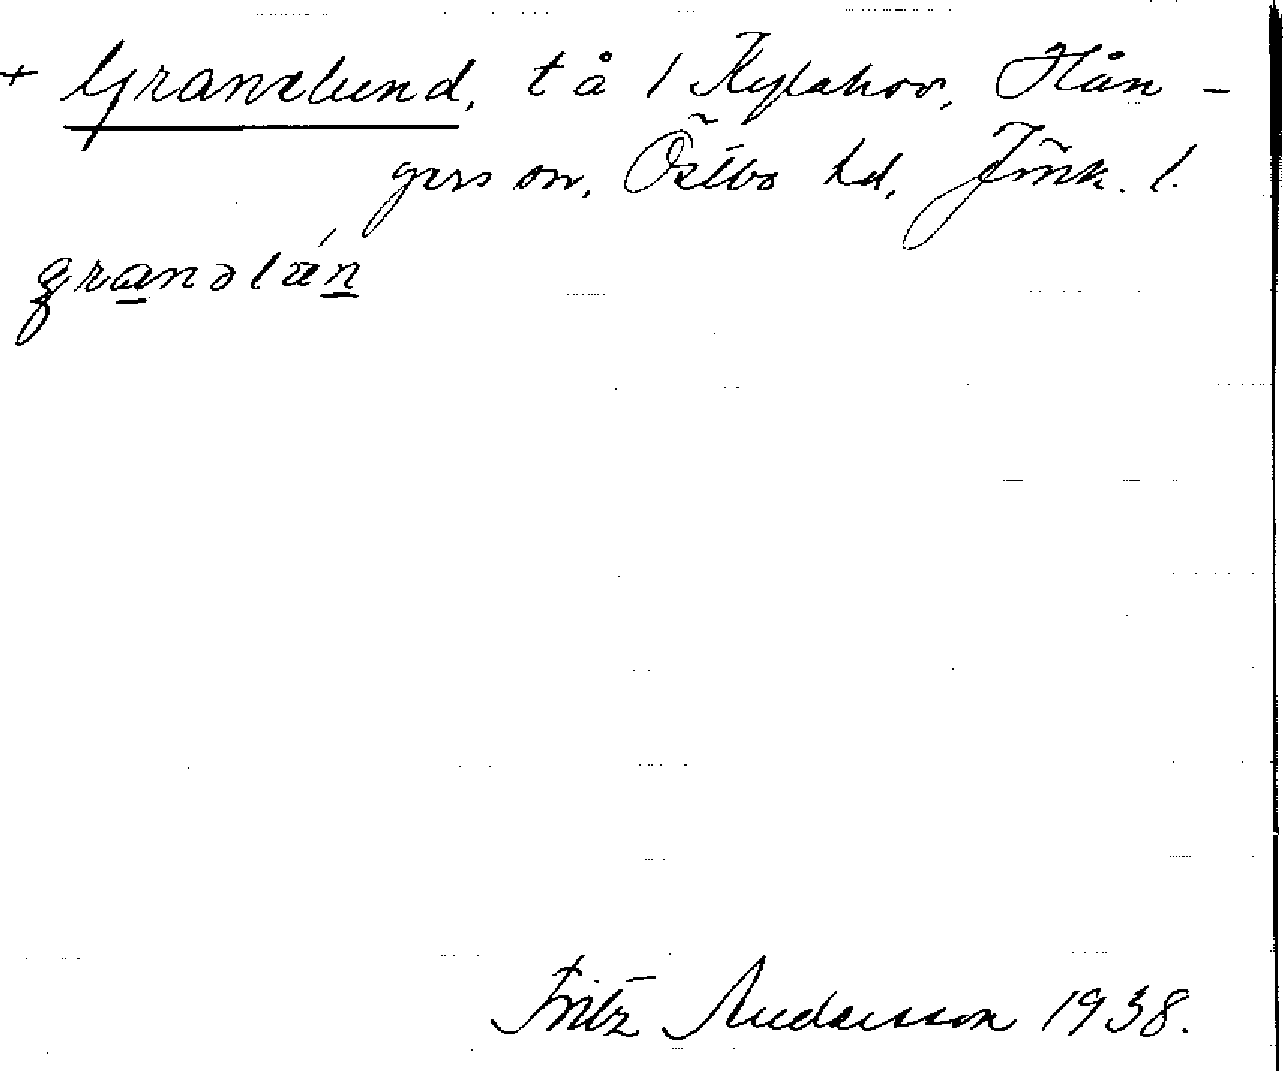 + Granelund, t å / Kylahov, Hån-
gers sn, Östbo hd, Jönk. l.
granəlán
Fritz Andersson 1938.